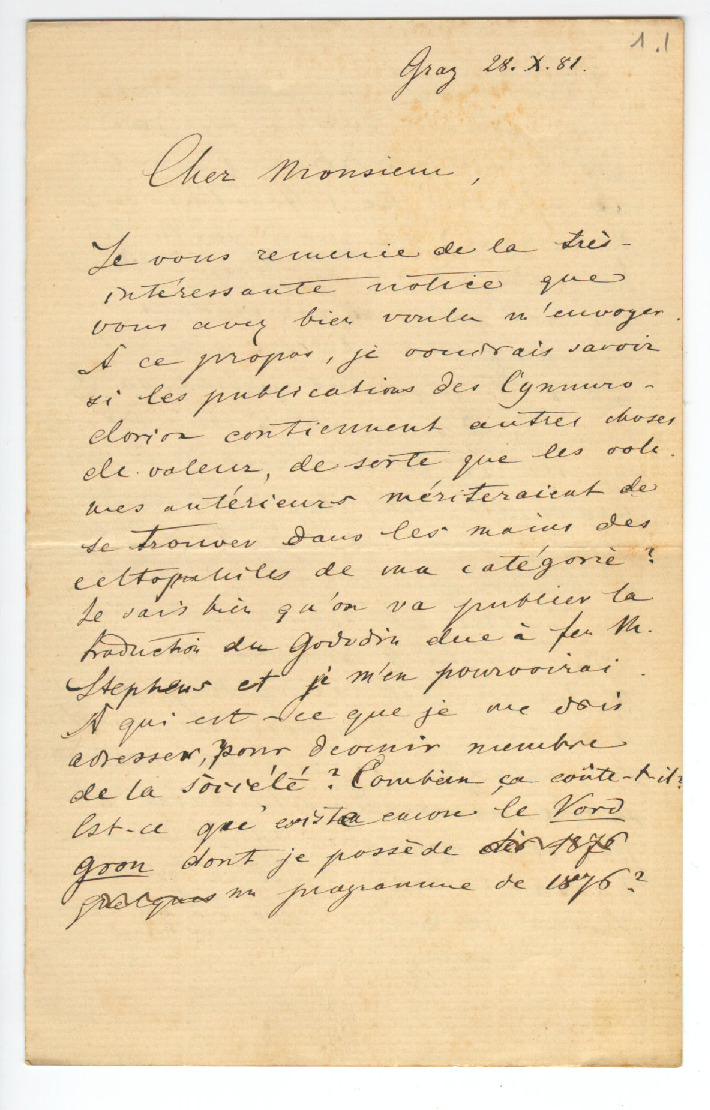 1.1
Graz 28. X. 81.
Cher Monsieur,
Je vous remercie de la très-
intéressante notice que
vous avez bien voulu m'envoyer.
A ce propos, je voudrais savoir
si les publications des Cymmro-
dorion contiennent autres choses
de valeur, de sorte que les volu-
mes antérieurs mériteraient de
se trouver dans les mains des
celtophiles de ma catégorie?
Je sais bien qu'on va publier la
traduction du Gododin due à feu M.
Stephens et je m'en pourvoirai.
A qui est-ce que je me dois
adresser, pour devenir membre
de la société? Combien ça coûte-t-il?
Est-ce que existe encore le Vord
Gron dont je possède 1876
quelques un programme de 1876?